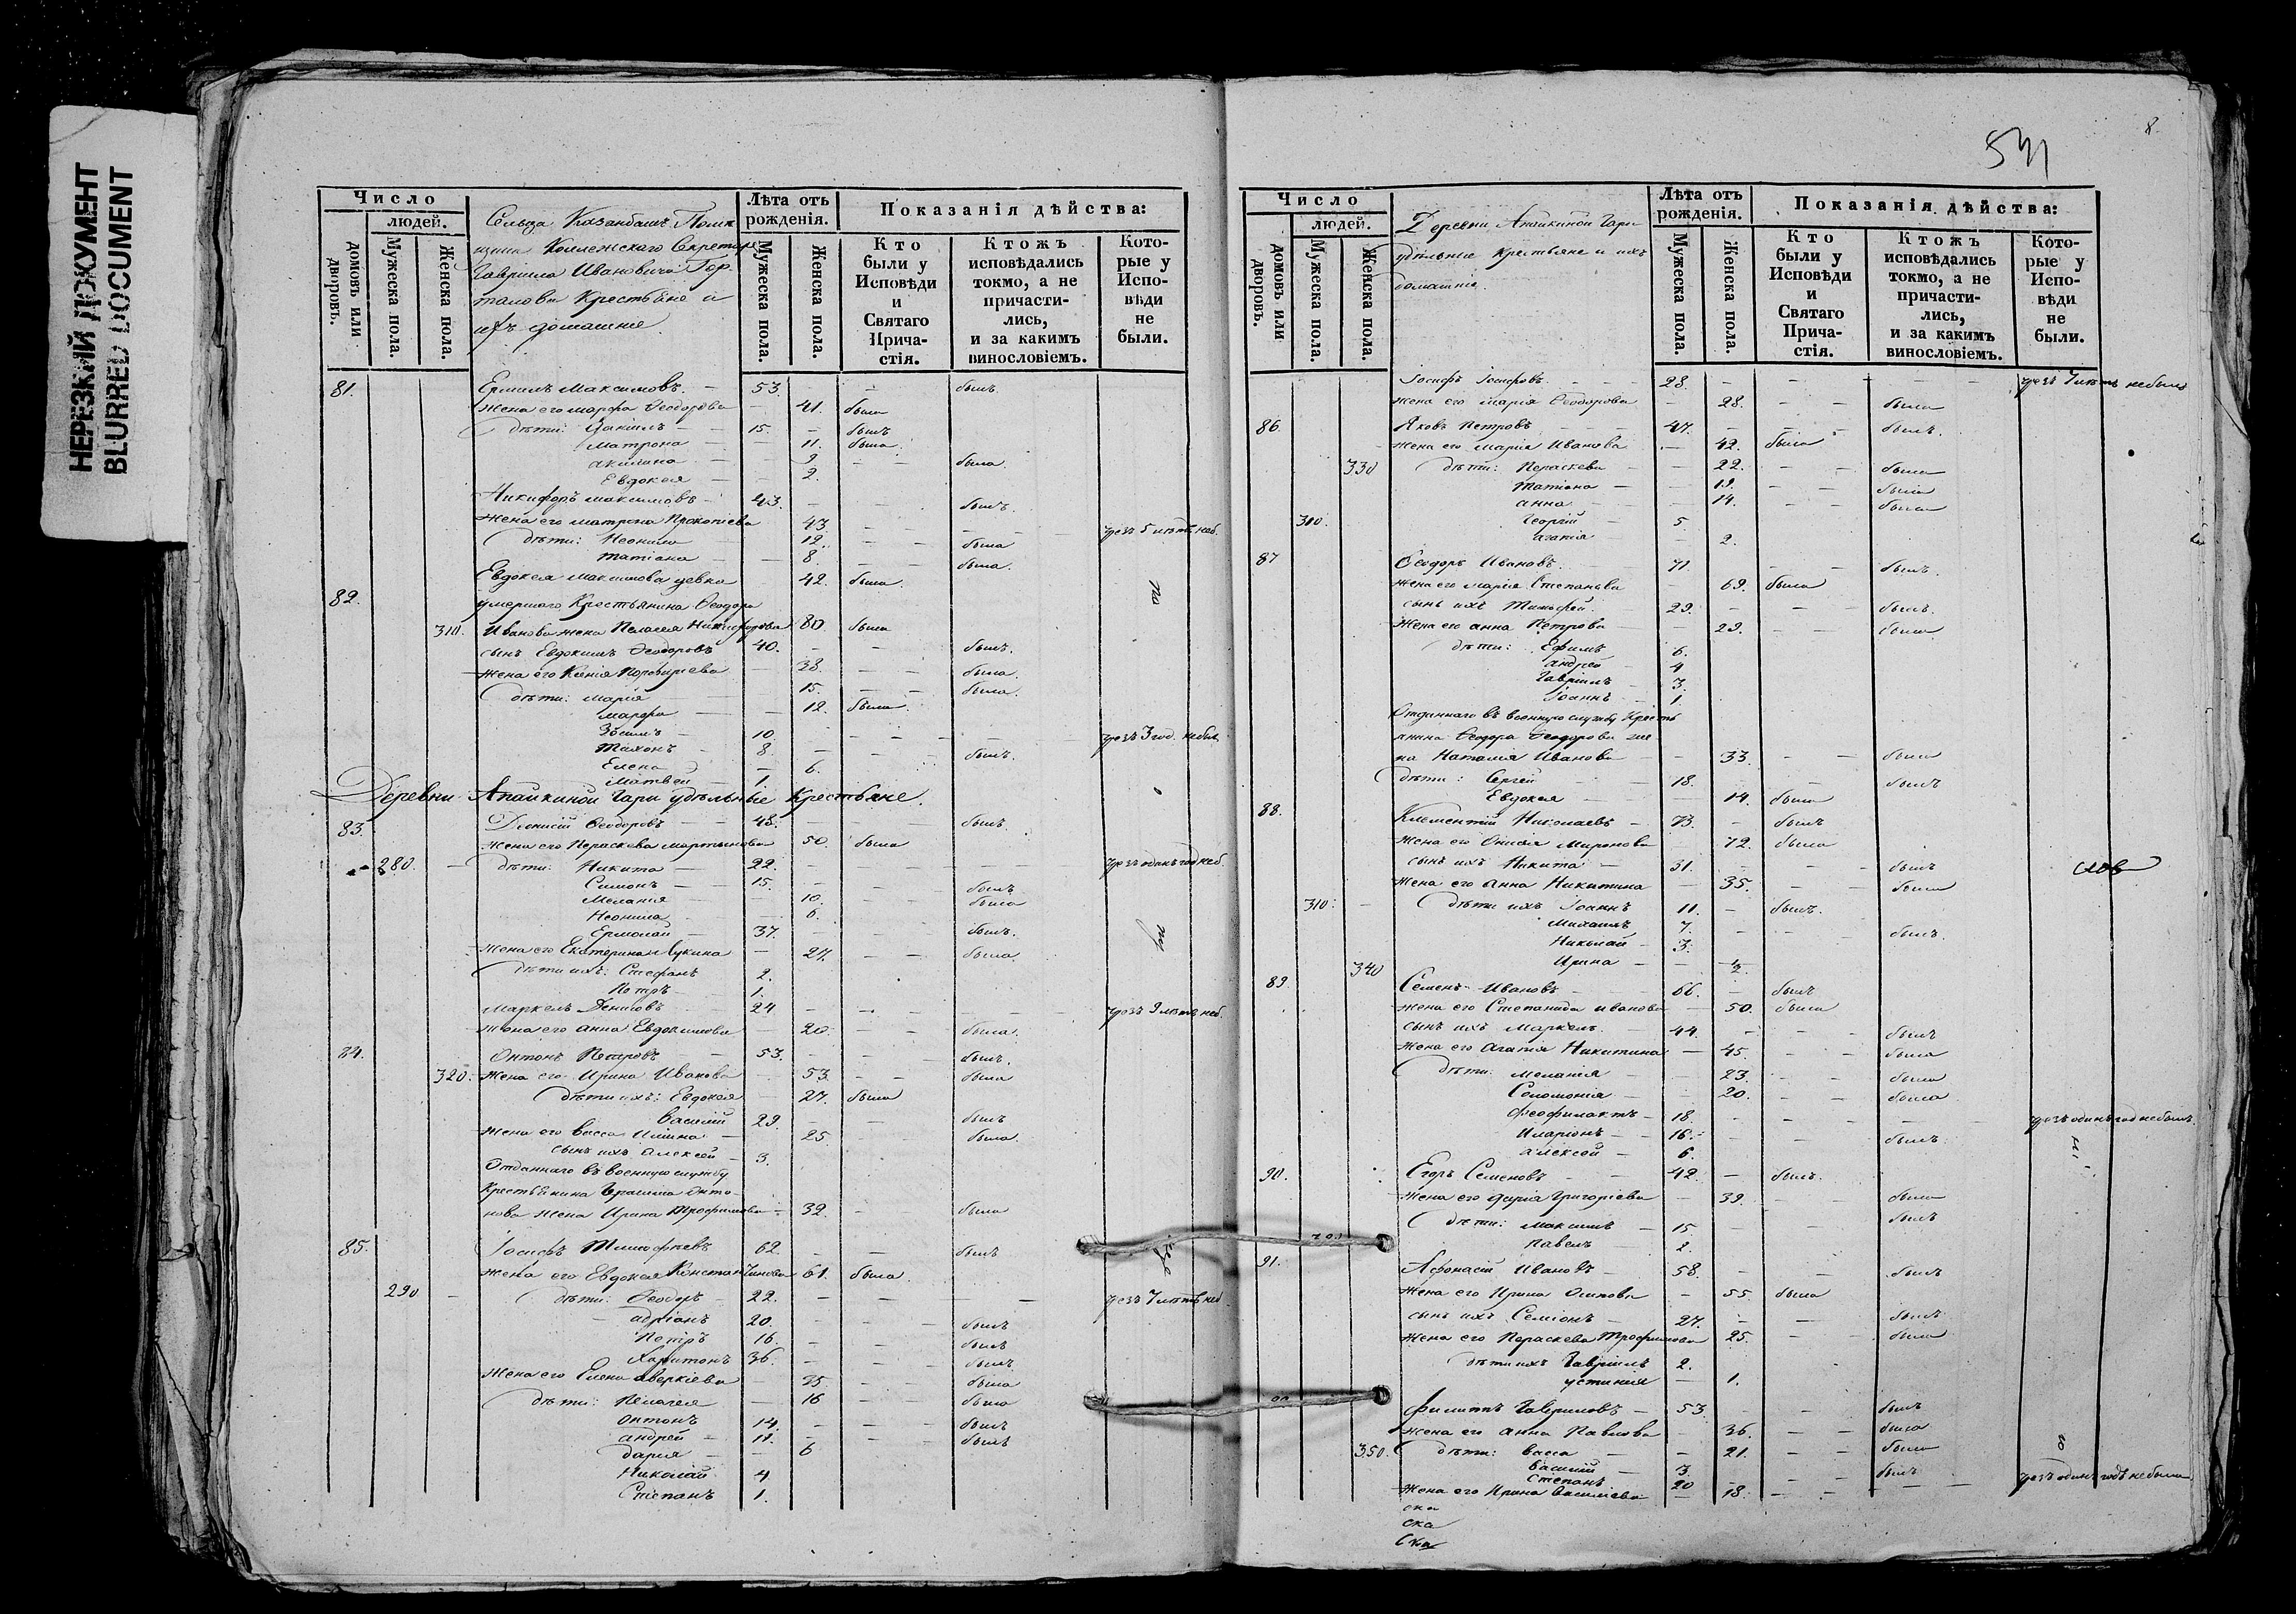 НЕРЕЗКИЙ ДОКУМЕНТ
BLURRED DOCUMENT
Число
людей.
домовъ или дворовъ.
Мужеска пола.
Женска пола.
Сельца Казанбашъ Помѣ
щика Коллежскаго Секретаря
Гаврила Ивановича Гор
талова Крестьяне и
ихъ домашніе.
Лѣта отъ рожденія.
Мужеска пола.
Женска пола.
Показанія дѣйства:
Кто были у Исповѣди и Святаго Прича-стія.
Ктожъ исповѣдались токмо, а не причасти-лись, и за какимъ винословіемъ.
Кото-рые у Испо-вѣди не были.
81. Ермилъ Максимовъ. 53. былъ
жена его Марфа Ѳеодорова 41. была
дѣти: Даніилъ 15. былъ
Матрона 11. была
Акилина 9 была.
Евдокея 2.
Никифоръ Максимовъ 43. былъ.
жена его Матрона Прокопіева 43 чрезъ 5 лѣтъ неб.
дѣти: Неонила 12. была
Татіана 8. была.
Евдокея Максимова девка 42. была.
82. умершаго Крестьянина Ѳеодора
310. Иванова жена Пелагея Никифорова 80 была
сынъ Евдокимъ Ѳеодоровъ 40. былъ.
жена его Ксенія Порфиріева 38. была.
дѣти: Марія 15. была.
Марфа 12. была.
10. чрезъ 3 год. небыл
Тихонъ 8. былъ.
Елена 6.
Матвей 1.
по
Деревни Апайкиной Гари удѣльные Крестьяне.
83. Діонисій Ѳеодоровъ 48. былъ.
жена его Параскева Мартынова 50. была
280. дѣти: Никита 22. чрезъ одинъ год неб.
Симонъ 15. былъ
Меланія 10. была
Неонила 6.
Ермолай 37. былъ.
жена его Екатерина Лукина 27. была.
дѣти ихъ: Стефанъ 2.
Петръ 1.
Маркелъ Денисовъ 24 чрезъ 9 лѣтъ неб.
жена его Анна Евдокимова 20. была.
84. Онтонъ Петровъ 53. былъ.
320. жена его Ирина Иванова 53. была
дѣти ихъ: Евдокея 27. была
Василій 29. былъ
жена его Васса Ильина 25. была.
сынъ ихъ Алексей 3.
Отданнаго въ военную службу
Крестьянина Герасима Онто
нова жена Ирина Трофимова 32. была
85. Іосифъ Тимофеевъ 62. былъ
жена его Евдокея Константинова 61. была.
290 дѣти: Ѳеодоръ 22. чрезъ 7 лѣтъ неб
Адріанъ 20. былъ
Петръ 16 былъ
Харитонъ 36. былъ
жена его Елена Аверкіева 35 была
дѣти: Пелагея 16 была
Онтонъ 14. былъ
Андрей 11. былъ
Дарья 6
Николай 4
Степанъ 1.
531
8.
Число
людей.
домовъ или дворовъ.
Мужеска пола.
Женска пола.
Деревни Апайкиной Гари
удѣльные крестьяне и ихъ
домашніе.
Лѣта отъ рожденія.
Мужеска пола.
Женска пола.
Показанія дѣйства:
Кто были у Исповѣди и Святаго Прича-стія.
Ктожъ исповѣдались токмо, а не причасти-лись, и за какимъ винословіемъ.
Кото-рые у Испо-вѣди не были.
Іосифъ Іосифовъ 28. чрезъ 7 лѣтъ небылъ
жена его Марія Ѳеодорова 28. была
86. Яковъ Петровъ 47. былъ.
жена его Марія Иванова 42. была
330 дѣти: Параскева 22. была
Татіана 19. была
Анна 14. была
300. Георгій 5
Агапія 2.
87 Ѳеодоръ Ивановъ. 71 былъ.
жена его Марія Степанова 69. была
сынъ ихъ Тимофей 29. былъ.
жена его Анна Петрова 29. была
дѣти: Ефимъ 6.
Андрей 4
Гавріилъ 3.
Іоаннъ 1
Отданнаго въ военную службу Кресть
янина Ѳеодора Ѳеодорова же
на Наталія Иванова 33. была
дѣти: Сергей 18. былъ
Евдокея 14. была
88. Климентій Николаевъ 73. былъ
жена его Онисія Миронова 72. была
сынъ ихъ Никита 31. былъ
жена его Анна Никитина 35. была
310. дѣти ихъ Іоаннъ 11. былъ.
Михаилъ 7. былъ.
Николай 3.
340 Ирина 2.
89. Семенъ Ивановъ 66. былъ
жена его Степанида Иванова 50. была
сынъ ихъ Маркелъ. 44. былъ
жена его Агапія Никитина 45. была
дѣти: Меланія 23. была
Соломонія 20. была
Феофилактъ 18. чрезъ одинъ год небылъ
Иларіонъ 16. былъ.
Алексей 6.
90. Егоръ Семеновъ 42. былъ.
жена его Дарія Григоріева 39. была
дѣти: Максимъ 15 былъ
Павелъ 2.
91. Афонасій Ивановъ 58. былъ
жена его Ирина Осипова 55. была
сынъ ихъ Семіонъ 27. былъ
жена его Параскева Трофимова 25. была
дѣти ихъ Гавріилъ 2.
Устинья 1.
Филиппъ Гавриловъ 53. былъ
жена его Анна Павлова 36. была
350. дѣти: Васса 21. была
Василій 3.
Степанъ 20 былъ
жена его Ирина Василіева 18. чрезъ одинъ годъ небыла
ска
ска
Ска